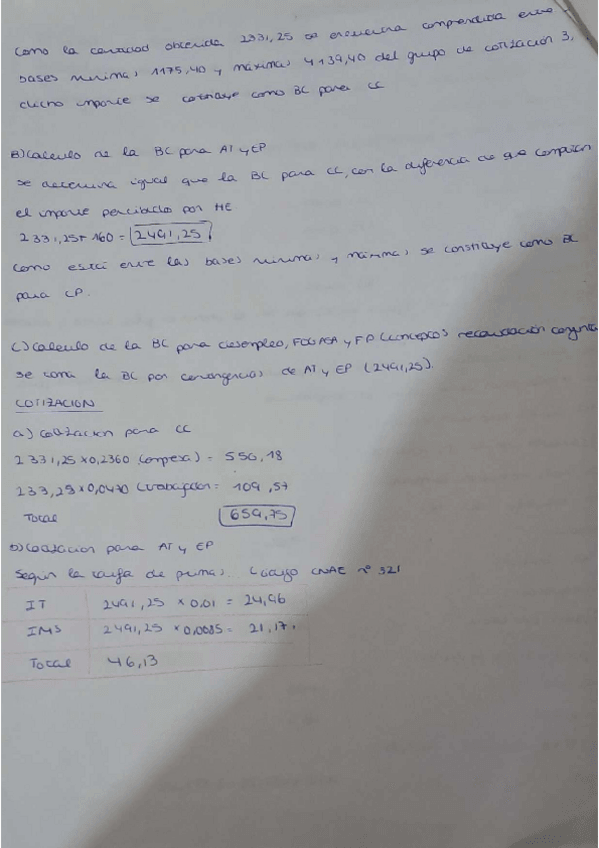 Como la cantidad obtenida 2331,25 se encuentra comprendida entre
bases minimas 1175,40 y maximas 4139,40 del grupo de cotización 3,
dicho importe se constituye como BC para CC
B) Calculo de la BC para AT y EP
se determina igual que la BC para CC, con la diferencia de que computan
el importe percibido por HE
2331,25+160= 2491,25
Como está entre las bases minimas y maximas se constituye como BC
para CP.
C) Calculo de la BC para desempleo, FOGASA y FP (conceptos recaudación conjunta
se toma la BC por contingencias de AT y EP (2491,25).
COTIZACION
a) Cotizacion para CC
2331,25x0,2360 (empresa) = 550,18
233,25x0,0470 (trabajador= 109,57
Total 659,75
b) Cotizacion para AT y EP
Según la tarifa de primas... Codigo CNAE nº 321
IT 2491,25 x 0.01 = 24,96
IMS 2491,25 x 0,0085= 21,17.
Total 46,13